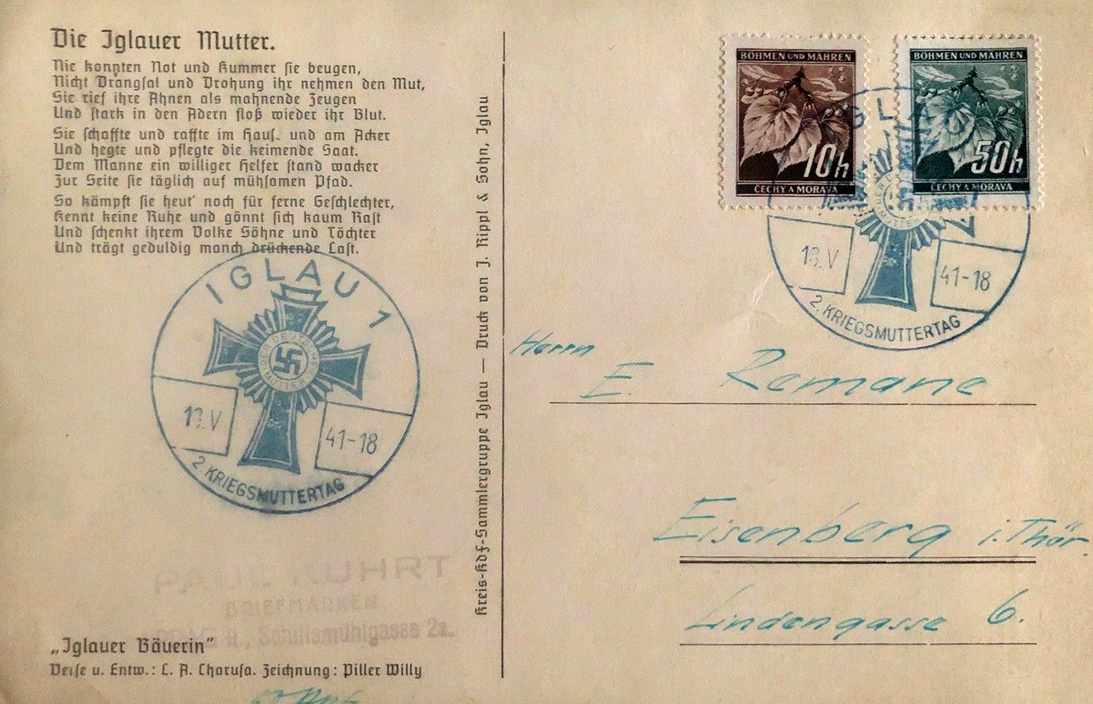 Die Iglauer Mutter.
Nie konnten Not und Kummer sie beugen,
Nicht Drangsal und Drohung ihr nehmen den Mut,
Sie rief ihre Ahnen als mahnende Zeugen
Und stark in den Adern floß wieder ihr Blut.
Sie schaffte und raffte im Haus und am Acker
Und hegte und pflegte die keimende Saat.
Dem Manne ein williger Helfer stand wacker
Zur Seite sie täglich auf mühsamen Pfad.
So kämpft sie heut' noch für ferne Geschlechter,
Kennt keine Ruhe und gönnt sich kaum Rast
Und schenkt ihrem Volke Söhne und Töchter
Und trägt geduldig manch drückende Last.
IGLAU 1
DER DEUTSCHEN MUTTER
V
41-18
2. KRIEGSMUTTERTAG
PAUL KUHRT
BRIEFMARKEN
„Iglauer Bäuerin"
Verse u. Entw.: L. A. Charusa. Zeichnung: Piller Willy
Kreis-KdF-Sammlergruppe Iglau — Druck von J. Rippl & Sohn, Iglau
BÖHMEN UND MÄHREN
10h
ČECHY A MORAVA
BÖHMEN UND MÄHREN
50h
ČECHY A MORAVA
IGLAU
V
41-18
2. KRIEGSMUTTERTAG
Herrn
E. Remane
Eisenberg i. Thür.
Lindengasse 6.